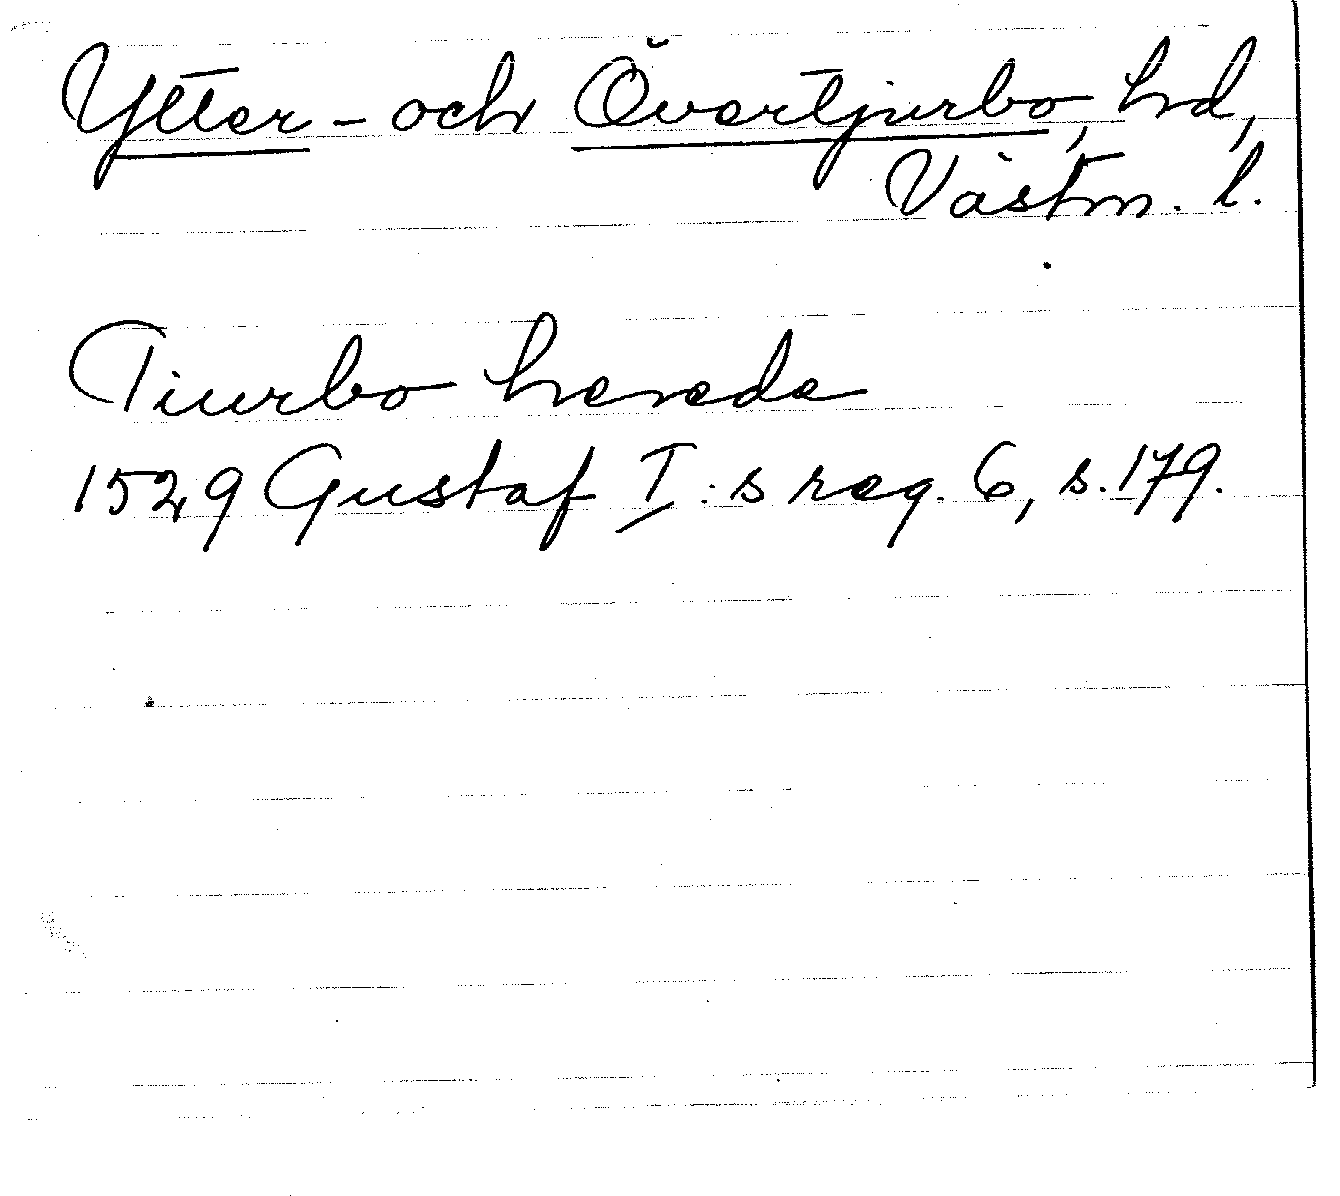 Ytter- och Övertjurbo, hd,
Västm. l.
Tiurbo herede
1529 Gustaf I:s reg. 6, s. 179.